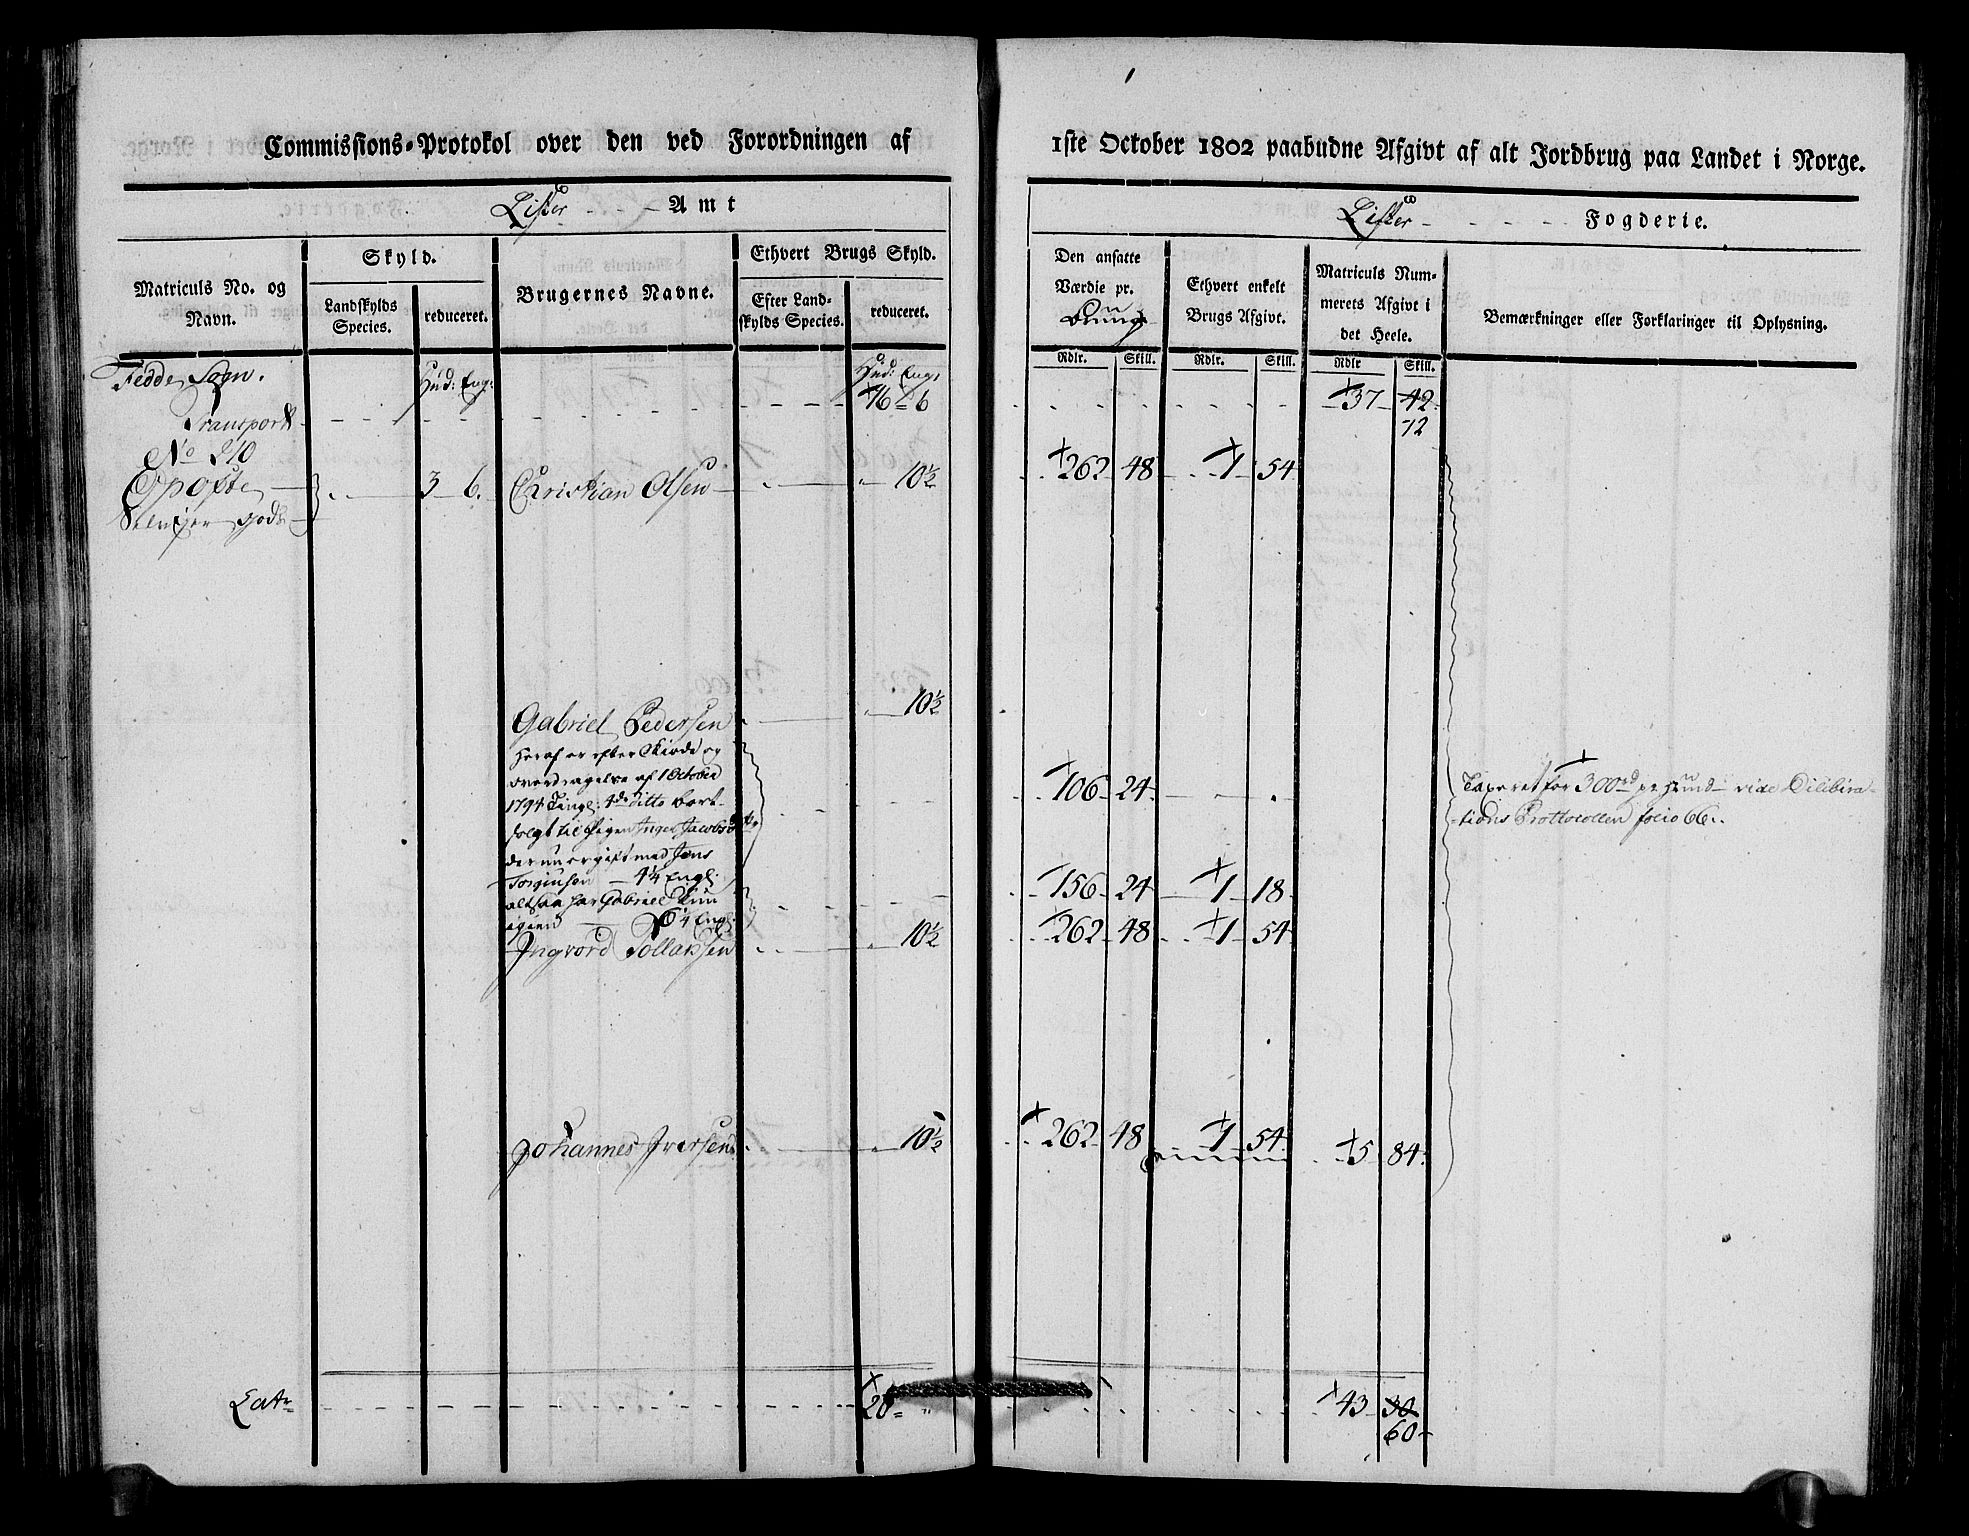 Commissions-Protokol over den ved Forordningen af
Lister Amt
Matriculs No. og Navn.
Skyld.
Landskylds Species.
reduceret.
Brugernes Navne.
Ethvert Brugs Skyld.
Efter Landskylds Species.
reduceret.
Fedde Sogn.
Hud: Eng:
Hud: Eng:
Transport 16 6
No 210
Opofte 3 6. Christian Olsen 10½
godts
Gabriel Pedersen 10½
Heraf er efter Skiøde og
overdragelse af 1 October
1794 Tingl: 4de ditto bort-
solgt til Pigen Inger Jacobsd
der nu er gift med Jens
Torginsen 4¼ Engl:
altsaa har Gabriel kun
igien 6¼ Engl:
Ingvord Tollaksen 10½
Johannes Iversen 10½
Latr 20 "
1ste October 1802 paabudne Afgivt af alt Jordbrug paa Landet i Norge.
Lister Fogderie.
Den ansatte Værdie pr. Brug
Ethvert enkelt Brugs Afgivt.
Matriculs Nummerets Afgivt i det Heele.
Bemærkninger eller Forklaringer til Oplysning.
Rdlr. Skill. Rdlr. Skill. Rdlr Skill.
37 42
12
262 48 1 54
106 24
Taxeret for 300rd pr Hund vide Dilibira-
tions Prottocollen folio 66.
156 24 1 18
262 48 1 54
262 48 1 54 5 84
43 30
60